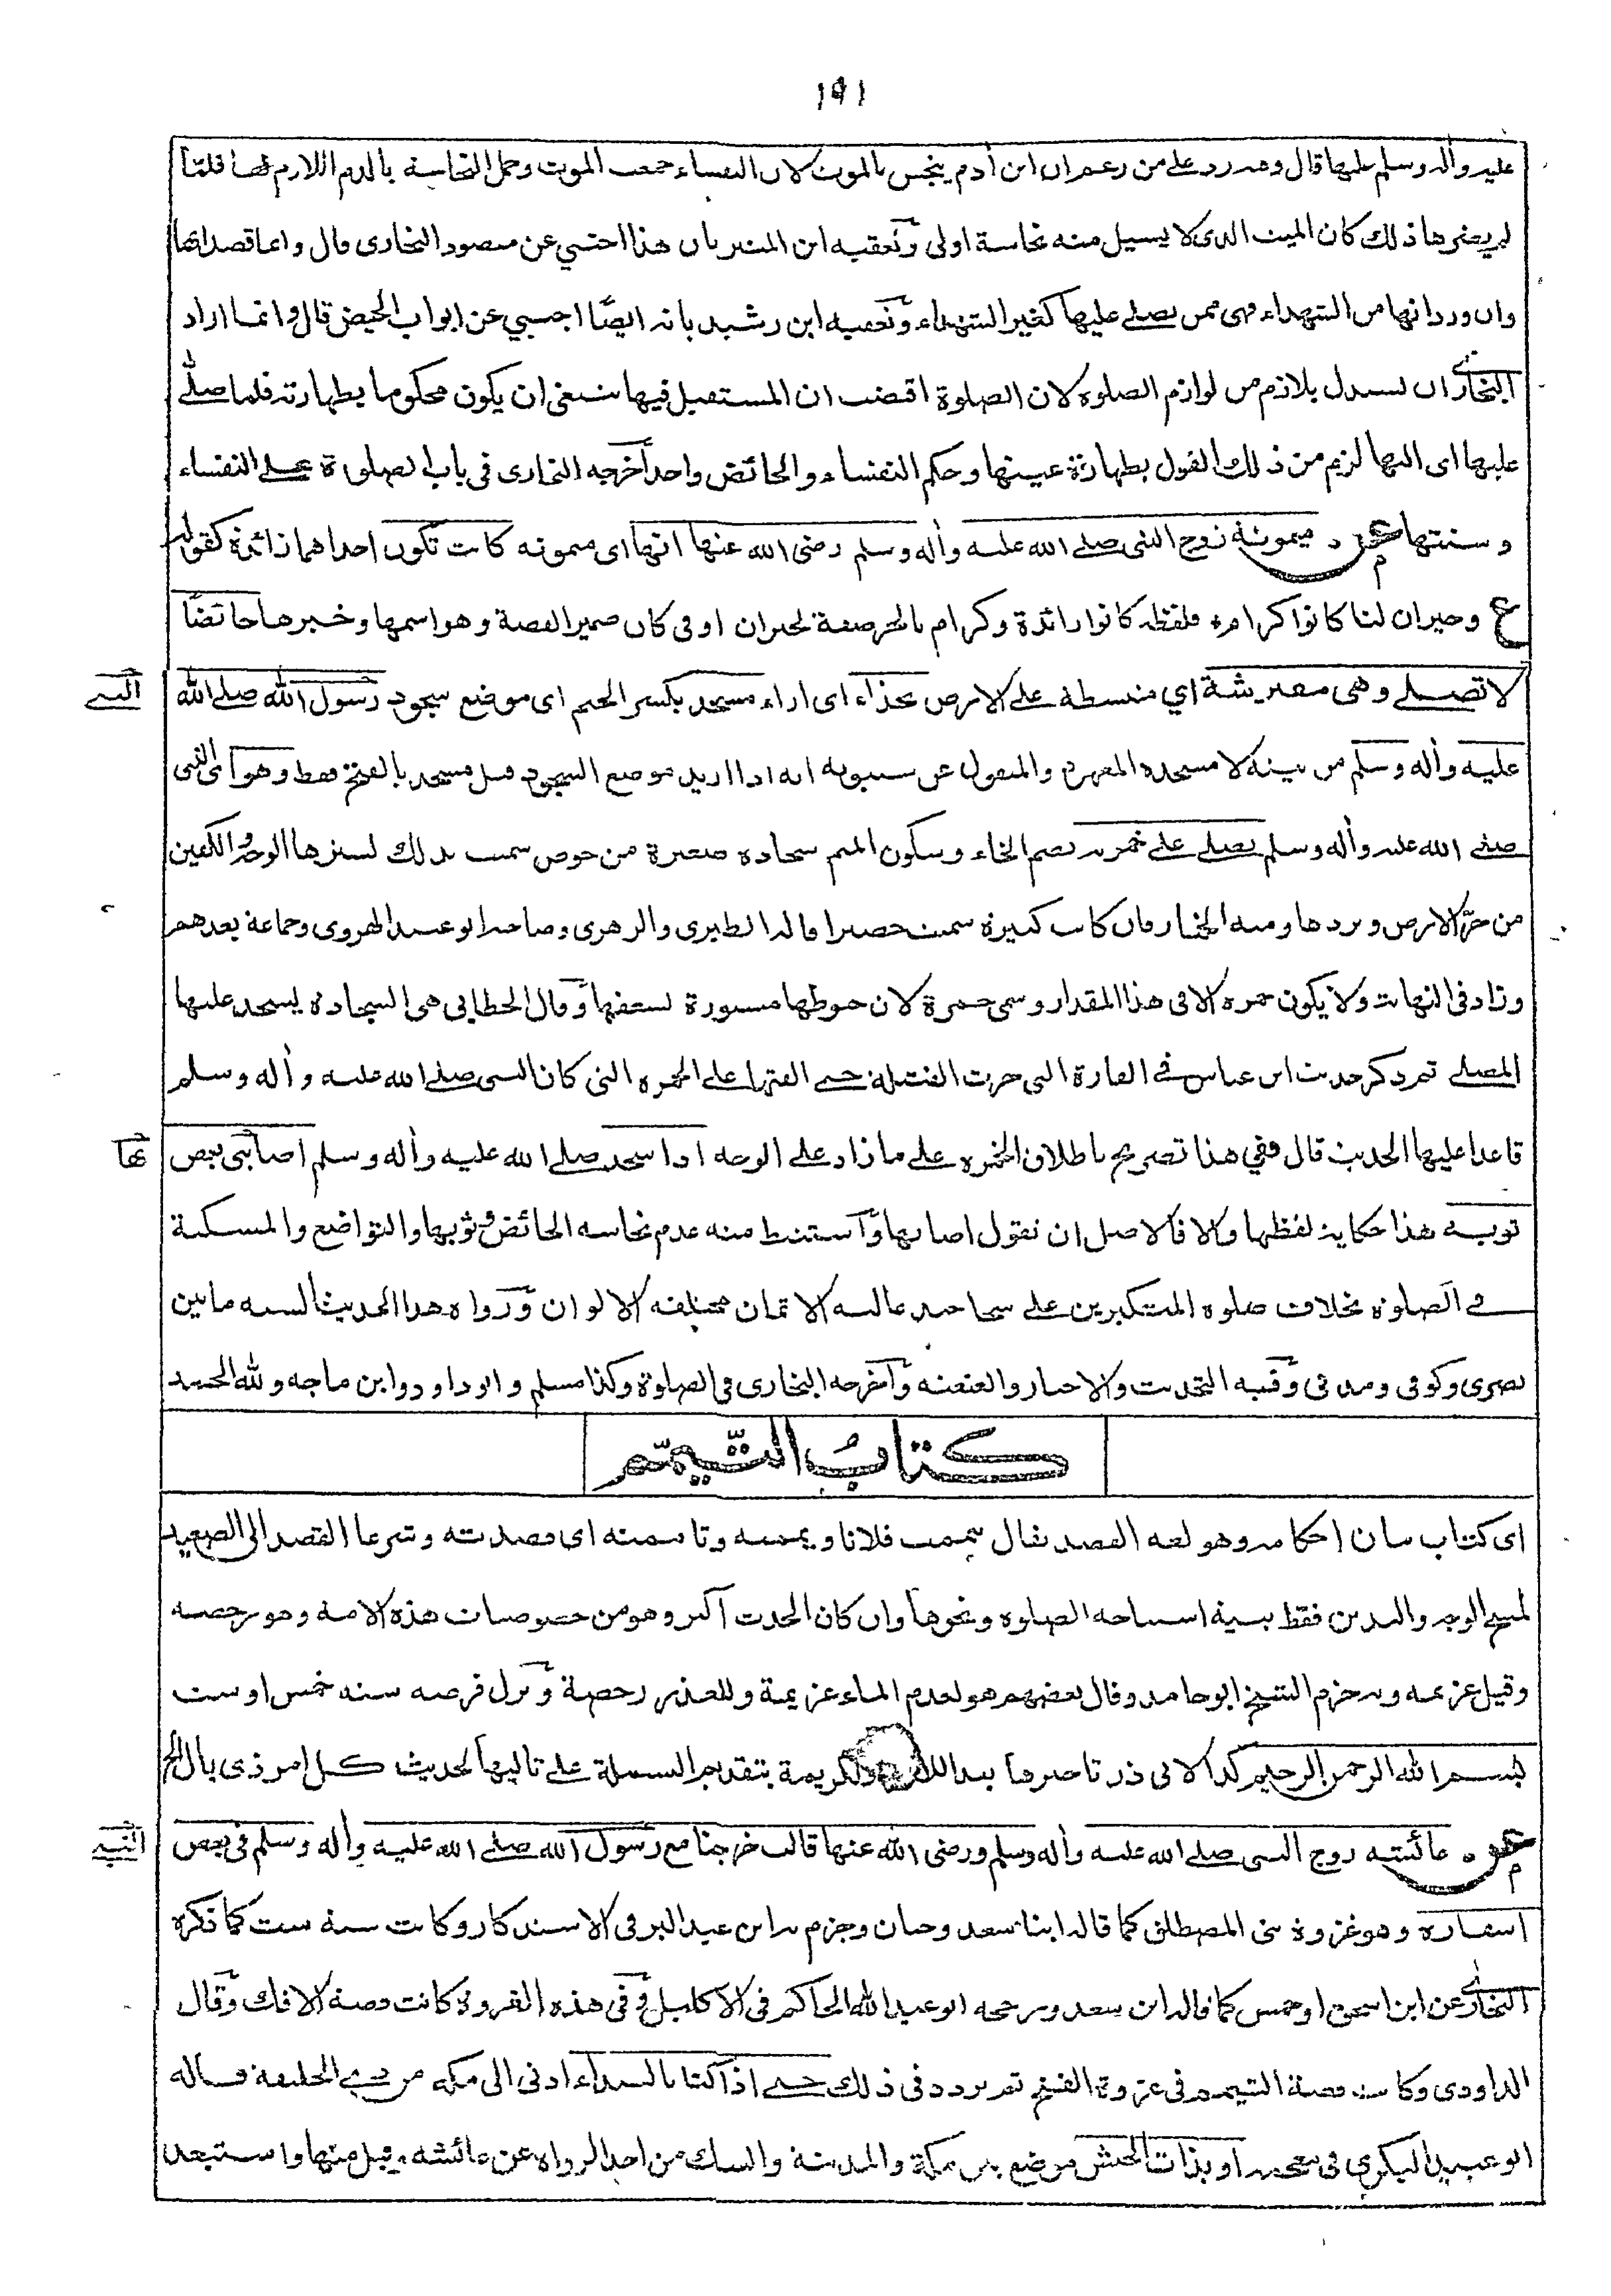 ١٩١
عليه واٰله وسلم عليها قال وفيه رد على من زعم ان ابن اٰدم ينجس بالموت لان النفساء جمعت الموت وحمل النجاسة بالدم اللازم لها فلمّا
لم يضرها ذلك كان الميت الذى لا يسيل منه نجاسة اولى وتعقبه ابن المنير بان هذا اجنبي عن مقصود البخارى قال وانما قصد انها
وان ورد انها من الشهداء فهى ممن يصلے عليها كغير الشهداء وتعقبه ابن رشيد بانه ايضًا اجنبي عن ابواب الحيض قال وانما اراد
البخارى ان يستدل بلازم من لوازم الصلوة لان الصلوة اقتضت ان المستقبل فيها ينبغى ان يكون محكوما بطهارته فلما صلّے
عليها اى اليها لزم من ذلك القول بطهارة عينها وحكم النفساء والحائض واحد أخرجه البخارى فى باب الصلوة علے النفساء
وسنتها ميمونة زوج النبى صلے الله عليه واٰله وسلم رضى الله عنها انها اى ميمونه كانت تكون احداهما زائدة كقوله
ع وجيران لنا كانوا كرام ۞ فلفظة كانوا زائدة وكرام بالجر صفة لجيران او فى كان ضمير القصة وهو اسمها وخبرها حائضًا
لا تصلے وهى مفترشة اي منبسطة علے الارض بحذاء اى ازاء مسجد بكسر الجيم اى موضع سجود رسول الله صلے الله
عليه واٰله وسلم من بيته لا مسجده المعهود والمنقول عن سيبويه انه اذا اريد موضع السجود قيل مسجد بالفتح فقط وهو اى النبى
صلے الله عليه واٰله وسلم يصلے علے خمرته بضم الخاء وسكون الميم سجادة صغيرة من خوص سميت بذلك لسترها الوجه والكفين
من حرّ الارض وبردها ومنه الخمار فان كانت كبيرة سميت حصيرا قاله الطبرى والزهرى وصاحبه ابو عبيد الهروى وجماعة بعدهم
وزاد فى النهاية ولا يكون خمره الا فى هذا المقدار وسمى خمرة لان خيوطها مستورة بسعفها وقال الخطابى هى السجادة يسجد عليها
المصلے ثم ذكر حديث ابن عباس فے الفارة التى جرت الفتيلة حتے القتها علے الخمره التى كان النبى صلے الله عليه واٰله وسلم
قاعدا عليها الحديث قال ففي هذا تصريح باطلاق الخمره علے ما زاد علے الوجه اذا سجد صلے الله عليه واٰله وسلم اصابنى بعض
ثوبه هذا حكاية لفظها والا فالاصل ان تقول اصابها واستنبط منه عدم نجاسه الحائض وثوبها والتواضع والمسكنة
فے الصلوة بخلاف صلوة المتكبرين علے سجاجيد غالية الاثمان مختلفه الالوان ورواة هذا الحديث الستة ما بين
بصرى وكوفى ومدنى وفيه التحديث والاخبار والعنعنه وأخرجه البخارى فى الصلوة وكذا مسلم وابو داود وابن ماجه ولله الحمد
كتابُ التّيمّم
اى كتاب بيان احكامه وهو لغه القصد يقال تيممت فلانا ويممته وتاممته اى قصدته وشرعا القصد الى الصعيد
لمسح الوجه واليدين فقط بنية استباحه الصلوة ونحوها وان كان الحدث اكبر وهو من خصوصيات هذه الامة وهو رخصه
وقيل عزيمه وبه جزم الشيخ ابو حامد وقال بعضهم هو لعدم الماء عزيمة وللعذر رخصة ونزل فرضه سنه خمس او ست
بسم الله الرحمن الرحيم كذا لابى ذر تاخيرها بعد اللاحق ولكريمة بتقديم البسملة علے تاليها لحديث كل امر ذى بال الخ
عائشه زوج النبى صلے الله عليه واٰله وسلم ورضى الله عنها قالت خرجنا مع رسول الله صلے الله عليه واٰله وسلم فى بعض
اسفاره وهو غزوة بنى المصطلق كما قاله ابنا سعد وحبان وجزم به ابن عبد البر فى الاستذكار وكانت سنة ست كما ذكره
البخارى عن ابن اسحق او خمس كما قاله ابن سعد ورجحه ابو عبد الله الحاكم فى الاكليل وفى هذه الغزوة كانت قصة الافك وقال
الداودى وكانت قصة التيمم فى غزوة الفتح ثم تردد فى ذلك حتے اذا كنا بالبيداء ادنى الى مكه من ذے الحليفة قاله
ابو عبيد البكري فى معجمه او بذات الجيش موضع بين مكة والمدينة والشك من احد الرواه عن عائشه وقيل منها واستبعد